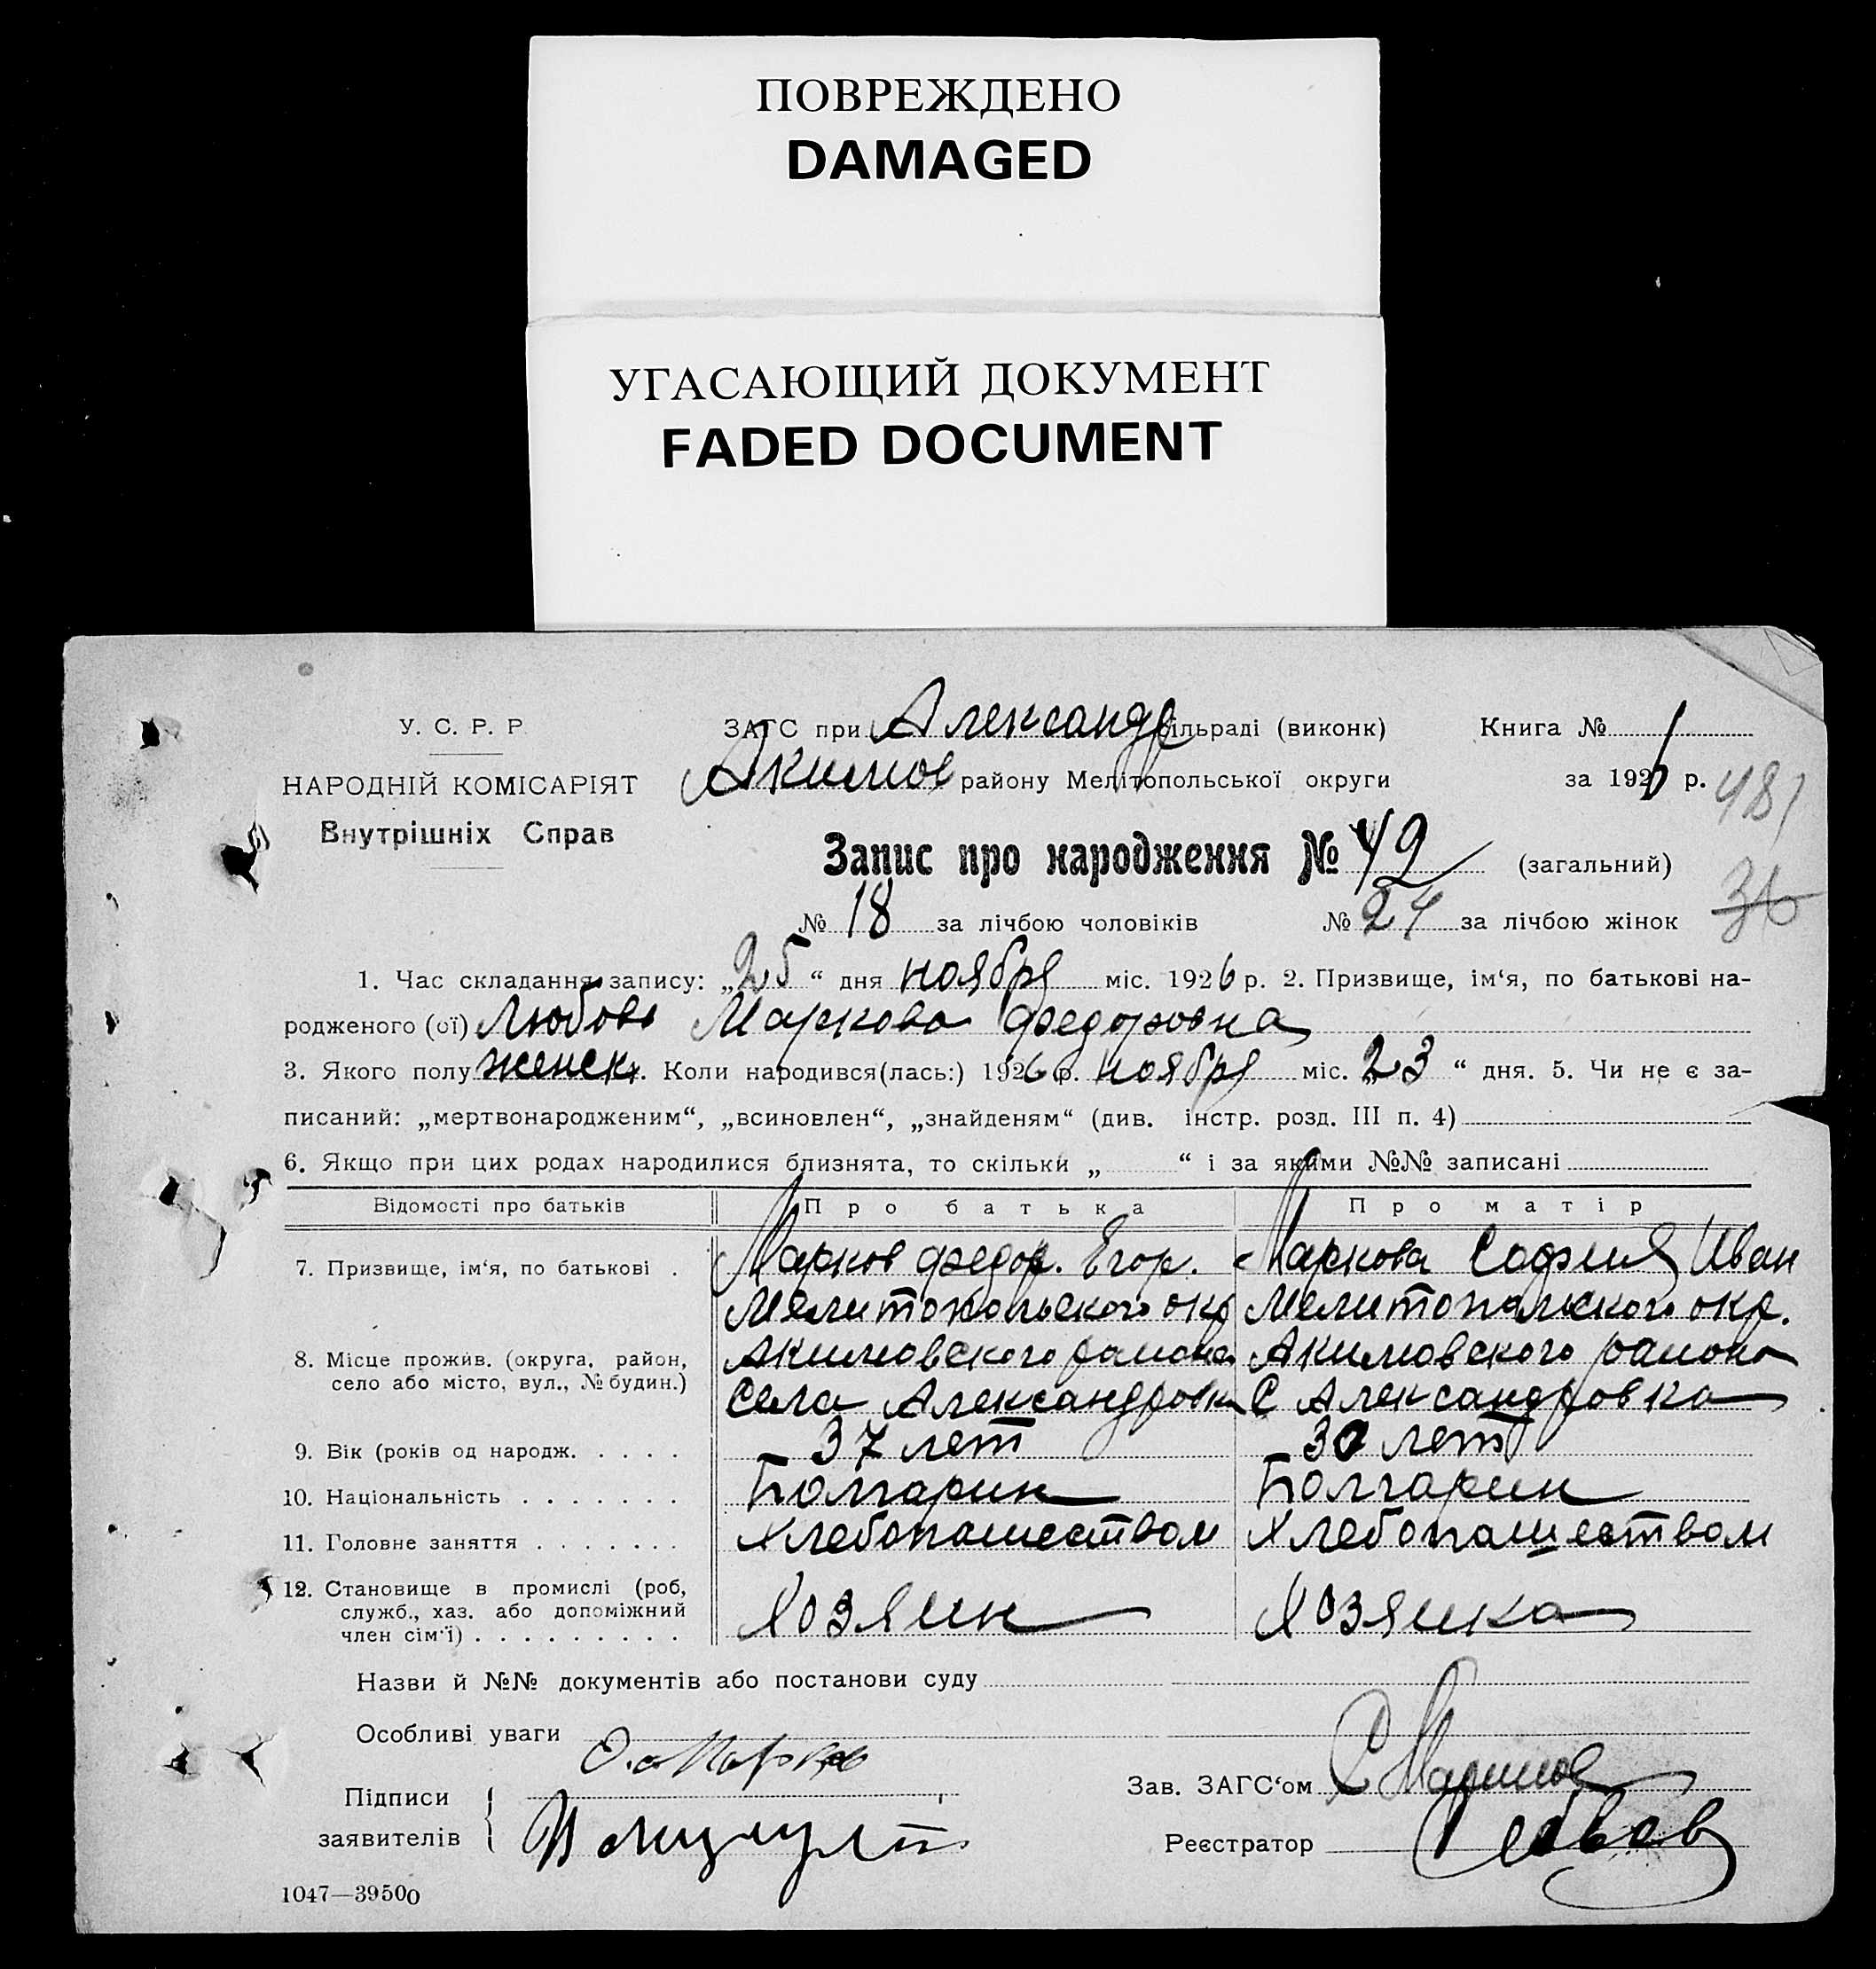 ПОВРЕЖДЕНО
DAMAGED
УГАСАЮЩИЙ ДОКУМЕНТ
FADED DOCUMENT
У. С. Р. Р.
НАРОДНІЙ КОМІСАРІЯТ
Внутрішніх Справ
ЗАГС при Александр сільраді (виконк) Книга № 1
Акимов району Мелітопольської округи за 192 р.
481
Запис про народження № 42 (загальний)
36
№ 18 за лічбою чоловіків № 24 за лічбою жінок
1. Час складання запису: „25“ дня ноября міс. 1926 р. 2. Призвище, ім‘я, по батькові на-
родженого (ої) Любовь Маркова Федоровна
3. Якого полу женск. Коли народився(лась:) 1926 р. ноября міс. „23“ дня. 5. Чи не є за-
писаний: „мертвонародженим“, „всиновлен“, „знайденям“ (див. інстр. розд. III п. 4)
6. Якщо при цих родах народилися близнята, то скільки „ “ і за якими №№ записані
Відомості про батьків Про батька Про матір
7. Призвище, ім‘я, по батькові . Марков Федор. Егор. Маркова София Иван
Мелитопольского окр Мелитопольского окр.
8. Місце прожив. (округа, район, село або місто, вул., № будин.) Акимовского района Акимовского района
Села Александровка С Александровка
9. Вік (років од народж. . . . . 37 лет 30 лет
10. Національність . . . . . . . Болгарин Болгарин
11. Головне заняття . . . . . . . Хлебопашеством Хлебопашеством
12. Становище в промислі (роб, служб., хаз. або допоміжний член сім‘ї) . . . . . . . . . Хозяин Хозяйка
Назви й №№ документів або постанови суду
Особливі уваги
Підписи заявителів Марков
Зав. ЗАГС‘ом С Маринов
Реєстратор
1047—39500